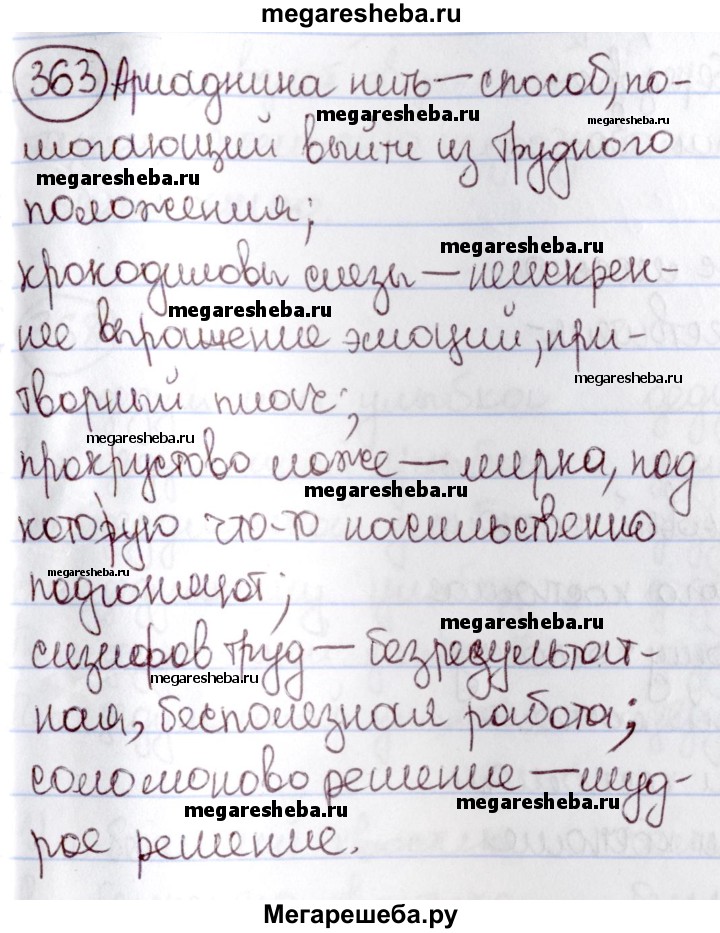 megaresheba.ru
363 Ариаднина нить — способ, по-
megaresheba.ru
megaresheba.ru
могающий выйти из трудного
megaresheba.ru
положения;
megaresheba.ru
крокодиловы слезы — неискрен-
megaresheba.ru
нее выражение эмоций, при-
megaresheba.ru
творный плач;
megaresheba.ru
прокрустово ложе — мерка, под
megaresheba.ru
которую что-то насильственно
megaresheba.ru
подгоняют;
megaresheba.ru
сизифов труд — безрезультат-
megaresheba.ru
ная, бесполезная работа;
соломоново решение — муд-
megaresheba.ru
megaresheba.ru
рое решение.
Мегарешеба.ру